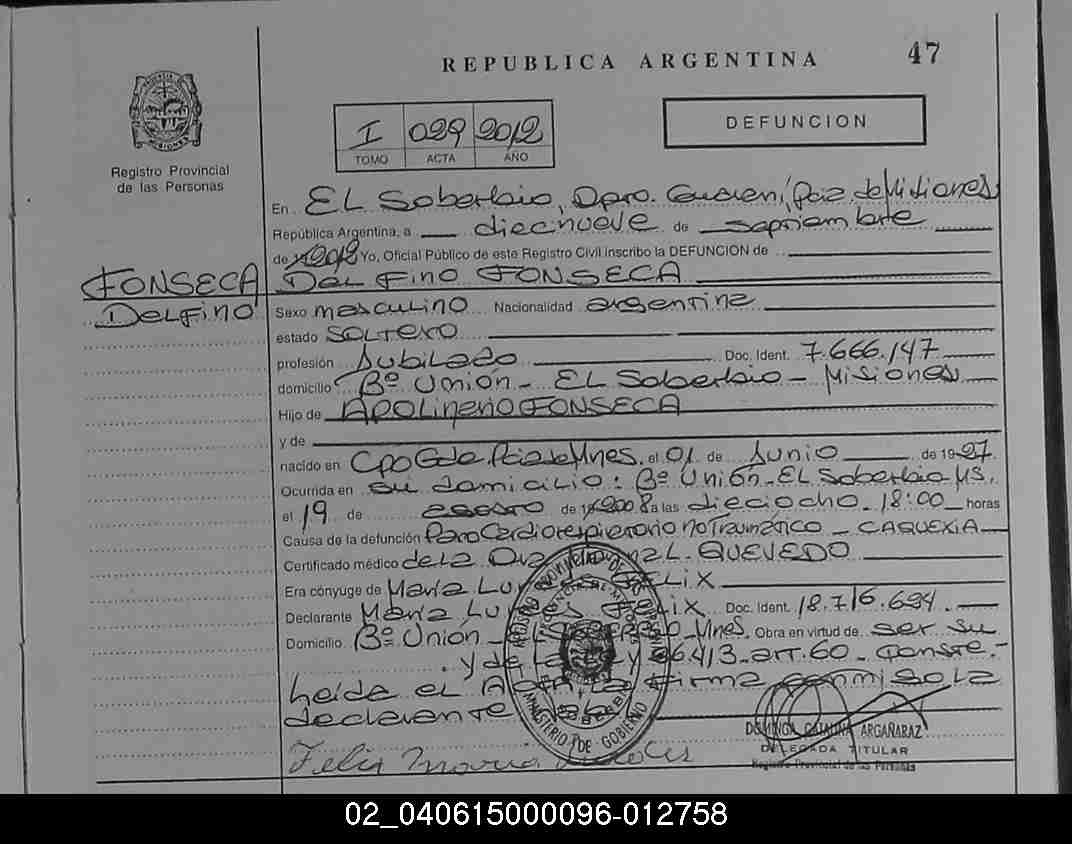 REPUBLICA ARGENTINA
47
Registro Provincial
de las Personas
I 029 2012
TOMO ACTA AÑO
DEFUNCION
En EL Soberbio, Dpto. Guaraní, Pcia. de Misiones
República Argentina, a diecinueve de septiembre
de 2012 Yo, Oficial Público de este Registro Civil inscribo la DEFUNCION de
FONSECA
DELFINO
DELFINO FONSECA
Sexo masculino Nacionalidad argentina
estado SOLTERO
profesión Jubilado Doc. Ident. 7.666.147
domicilio Bº Unión - EL Soberbio - Misiones
Hijo de APOLINARIO FONSECA
y de
nacido en Cpo Gde. Pcia de Mnes. el 01 de Junio de 1927.
Ocurrida en su domicilio: Bº Unión - EL Soberbio Ms.
el 19 de agosto de 2008 a las dieciocho - 18:00 horas
Causa de la defunción Paro Cardiorespiratorio no Traumático - CAQUEXIA
Certificado médico de la Dra L. QUEVEDO
Era cónyuge de María FELIX
Declarante María FELIX Doc. Ident. 18.716.694.
Domicilio Bº Unión - Mnes. Obra en virtud de ser su
y de la Ley 26.413 - art. 60 - Conste. -
leída el Acta la firma conmigo la
declarante
Felix Maria
REGISTRO PROVINCIAL DE LAS PERSONAS
MINISTERIO DE GOBIERNO
DOMINGA CATALINA ARGAÑARAZ
DELEGADA TITULAR
Registro Provincial de las Personas
02_040615000096-012758